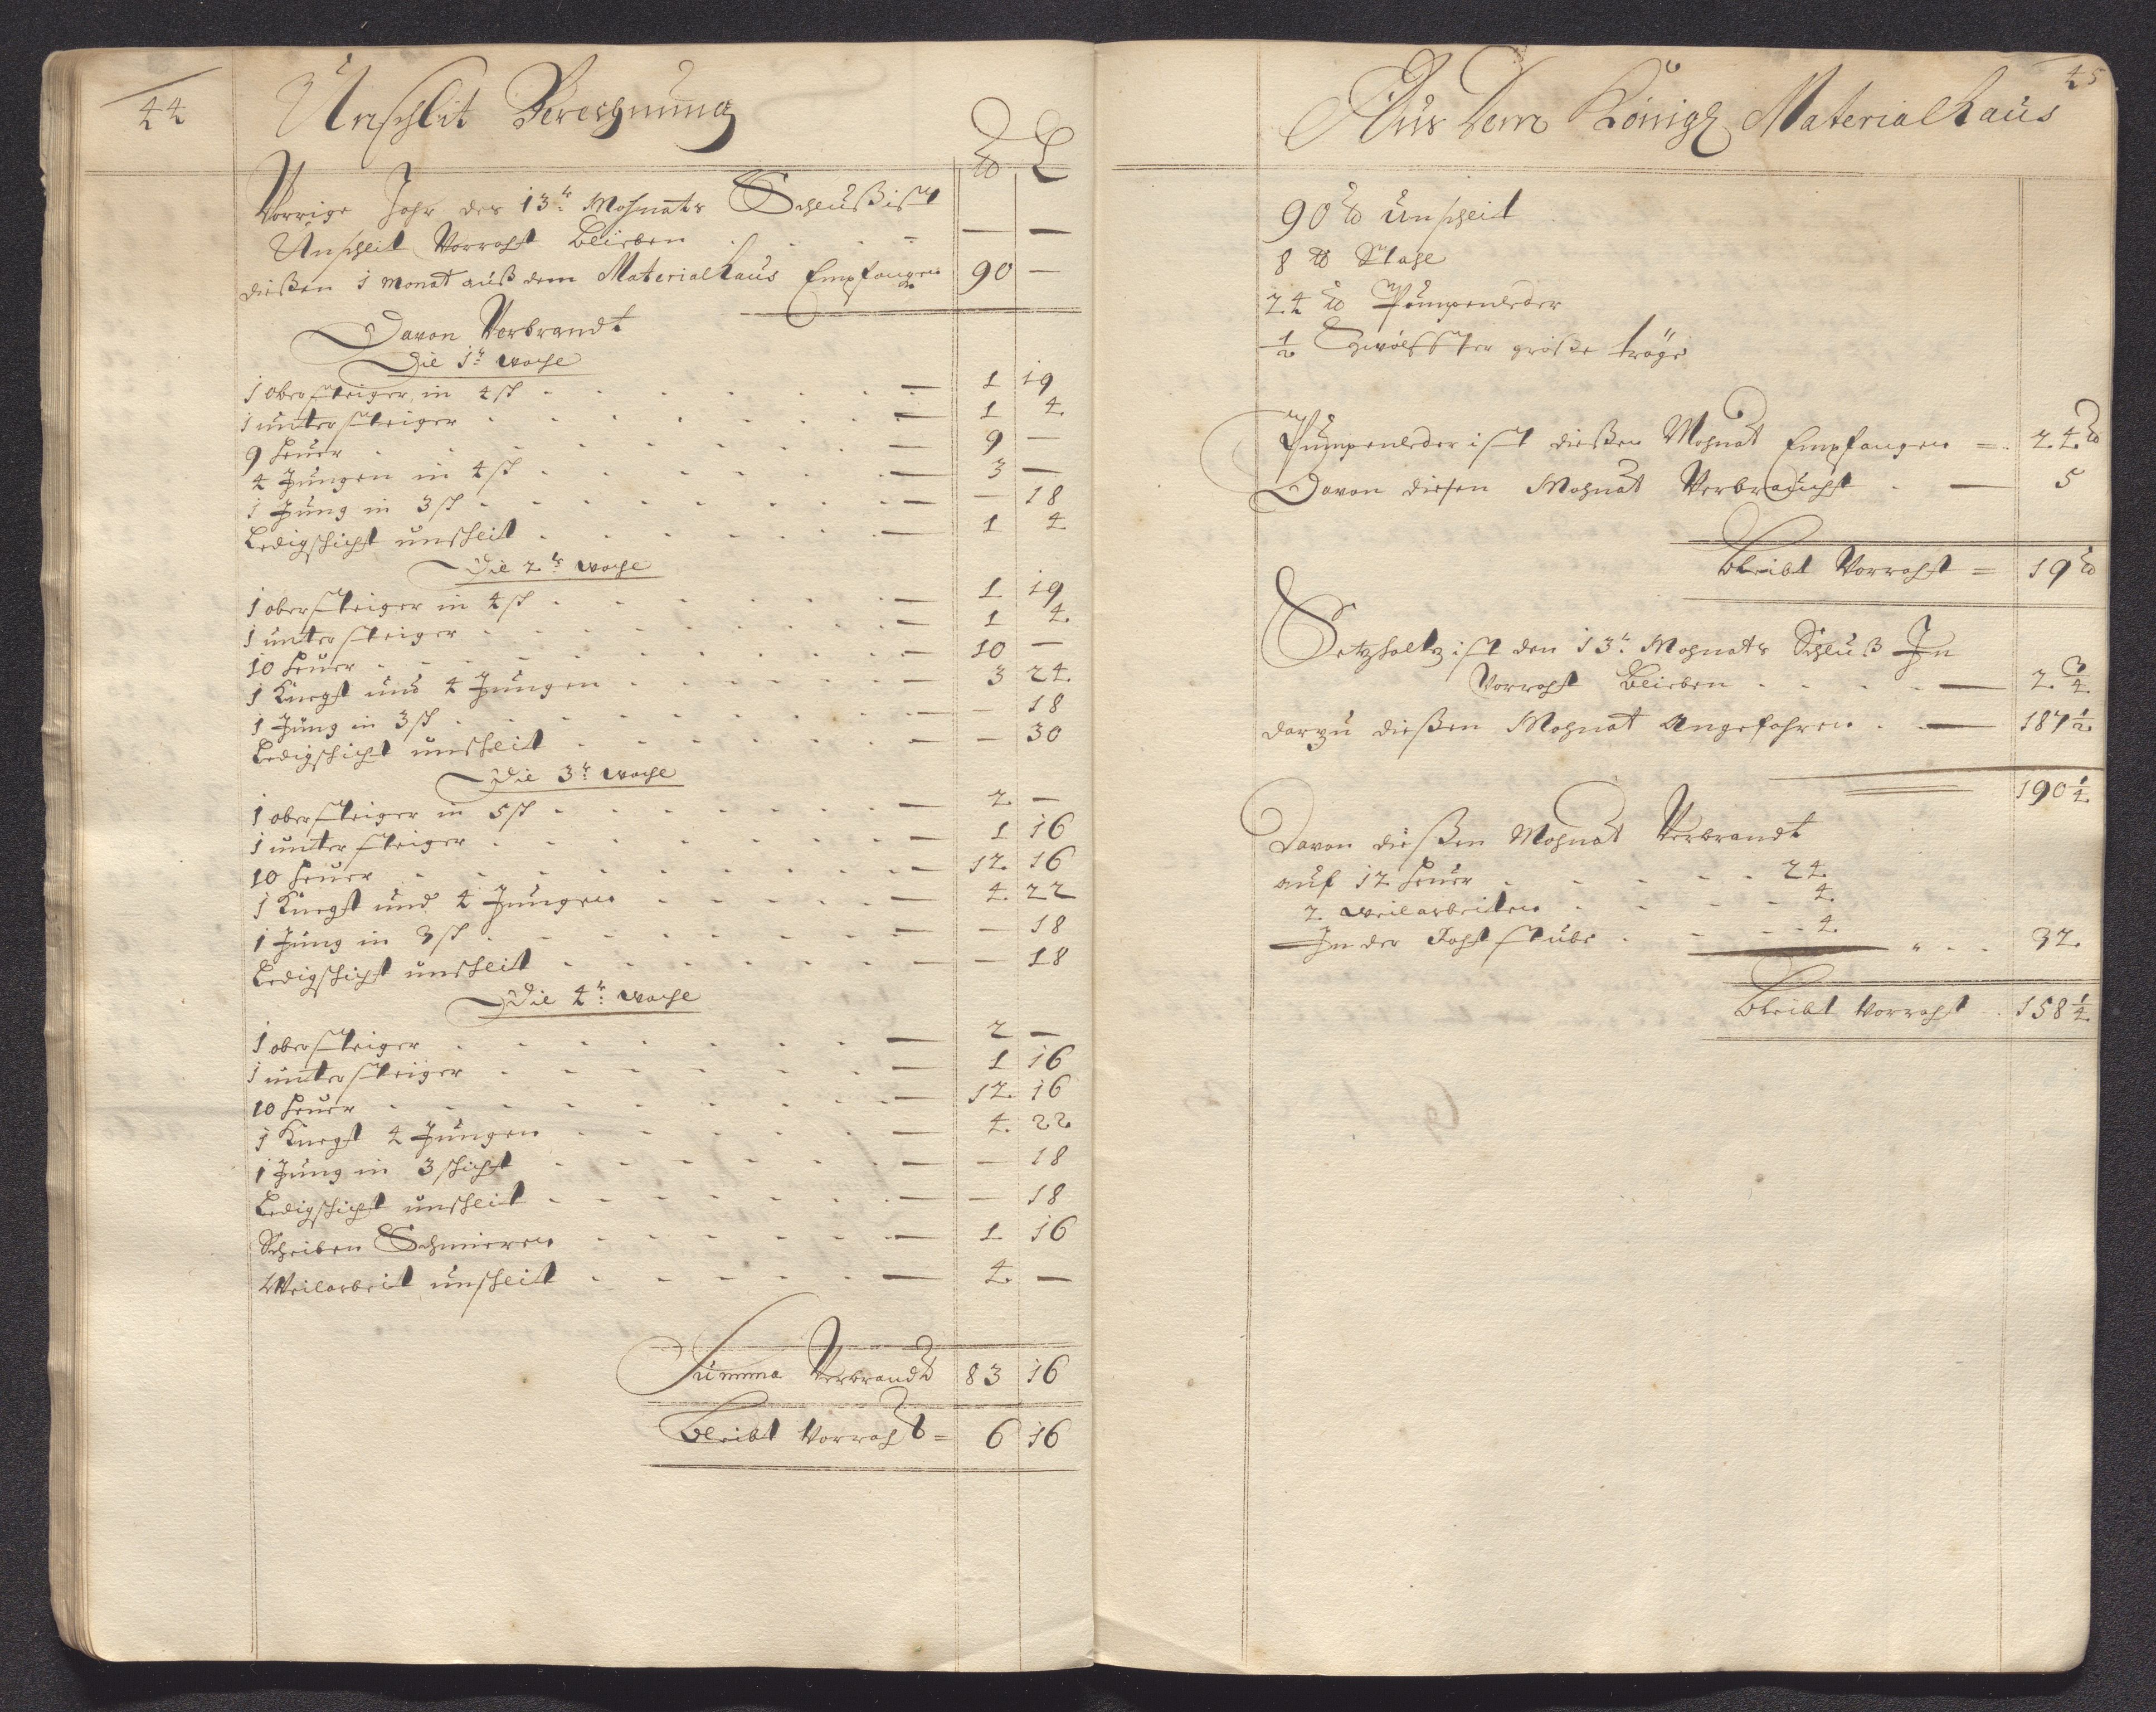 44
Unschlit Berechnung
℔ L
Vorrige Jahr des 13t: Mohnats Schlußist
Unschlit Vorraht blieben . . . = — —
dießen 1 Monat auß dem Materialhaus Empfangen 90 —
Davon Verbrandt
Die 1t: woche
1 obersteiger, in 4 sch . . . — 1 19
1 untersteiger . . . — 1 4
9 heuer . . . — 9 —
4 Jungen in 4 sch . . . — 3 —
1 Jung in 3 sch . . . — — 18
Ledigschicht unschlit . . . — 1 4
Die 2t: woche
1 obersteiger in 4 sch . . . — 1 19
1 untersteiger . . . — 1 4
10 heuer . . . — 10 —
1 Knecht und 4 Jungen . . . — 3 24
1 Jung in 3 sch . . . — — 18
Ledigschicht unschlit . . . — — 30
Die 3t: woche
1 obersteiger in 5 sch . . . — 2 —
1 untersteiger . . . — 1 16
10 heuer . . . — 12 16
1 Knecht und 4 Jungen . . . — 4 22
1 Jung in 3 sch . . . — — 18
Ledigschicht unschlit . . . — — 18
Die 4t: woche
1 obersteiger . . . — 2 —
1 untersteiger . . . — 1 16
10 heuer . . . — 12 16
1 Knecht 4 Jungen . . . — 4 22
1 Jung in 3 schicht . . . — — 18
Ledigschicht unschlit . . . — — 18
Scheiben Schmieren . . . — 1 16
Weilarbeit unschlit . . . — 4 —
Summa Verbrandt 83 16
bleibt Vorraht = 6 16
45
Aus dem Königl Materialhaus
90 ℔ unschlit
8 ℔ Stahl
24 ℔ Pumpenleder
1/2 Zwölffter große tröge
Pumpenleder ist dießen Mohnat Empfangen = 24 ℔
Davon diesen Mohnat Verbraucht . — 5
bleibt Vorraht = 19 ℔
Setzholtz ist den 13t: Mohnats Schluß In
Vorraht blieben . . . — 2 3/4
darzu dießen Mohnat Angefahren . — 187 1/2
190 1/4
Davon dießen Mohnat Verbrandt
auf 12 heuer . . . 24
2 weilarbeiten . . . 4
In der Fahrt stube . . . 4 . . 32
bleibt Vorraht . 158 1/4